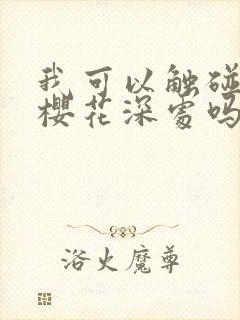 我可以触碰
樱花深处吗
浴火魔尊